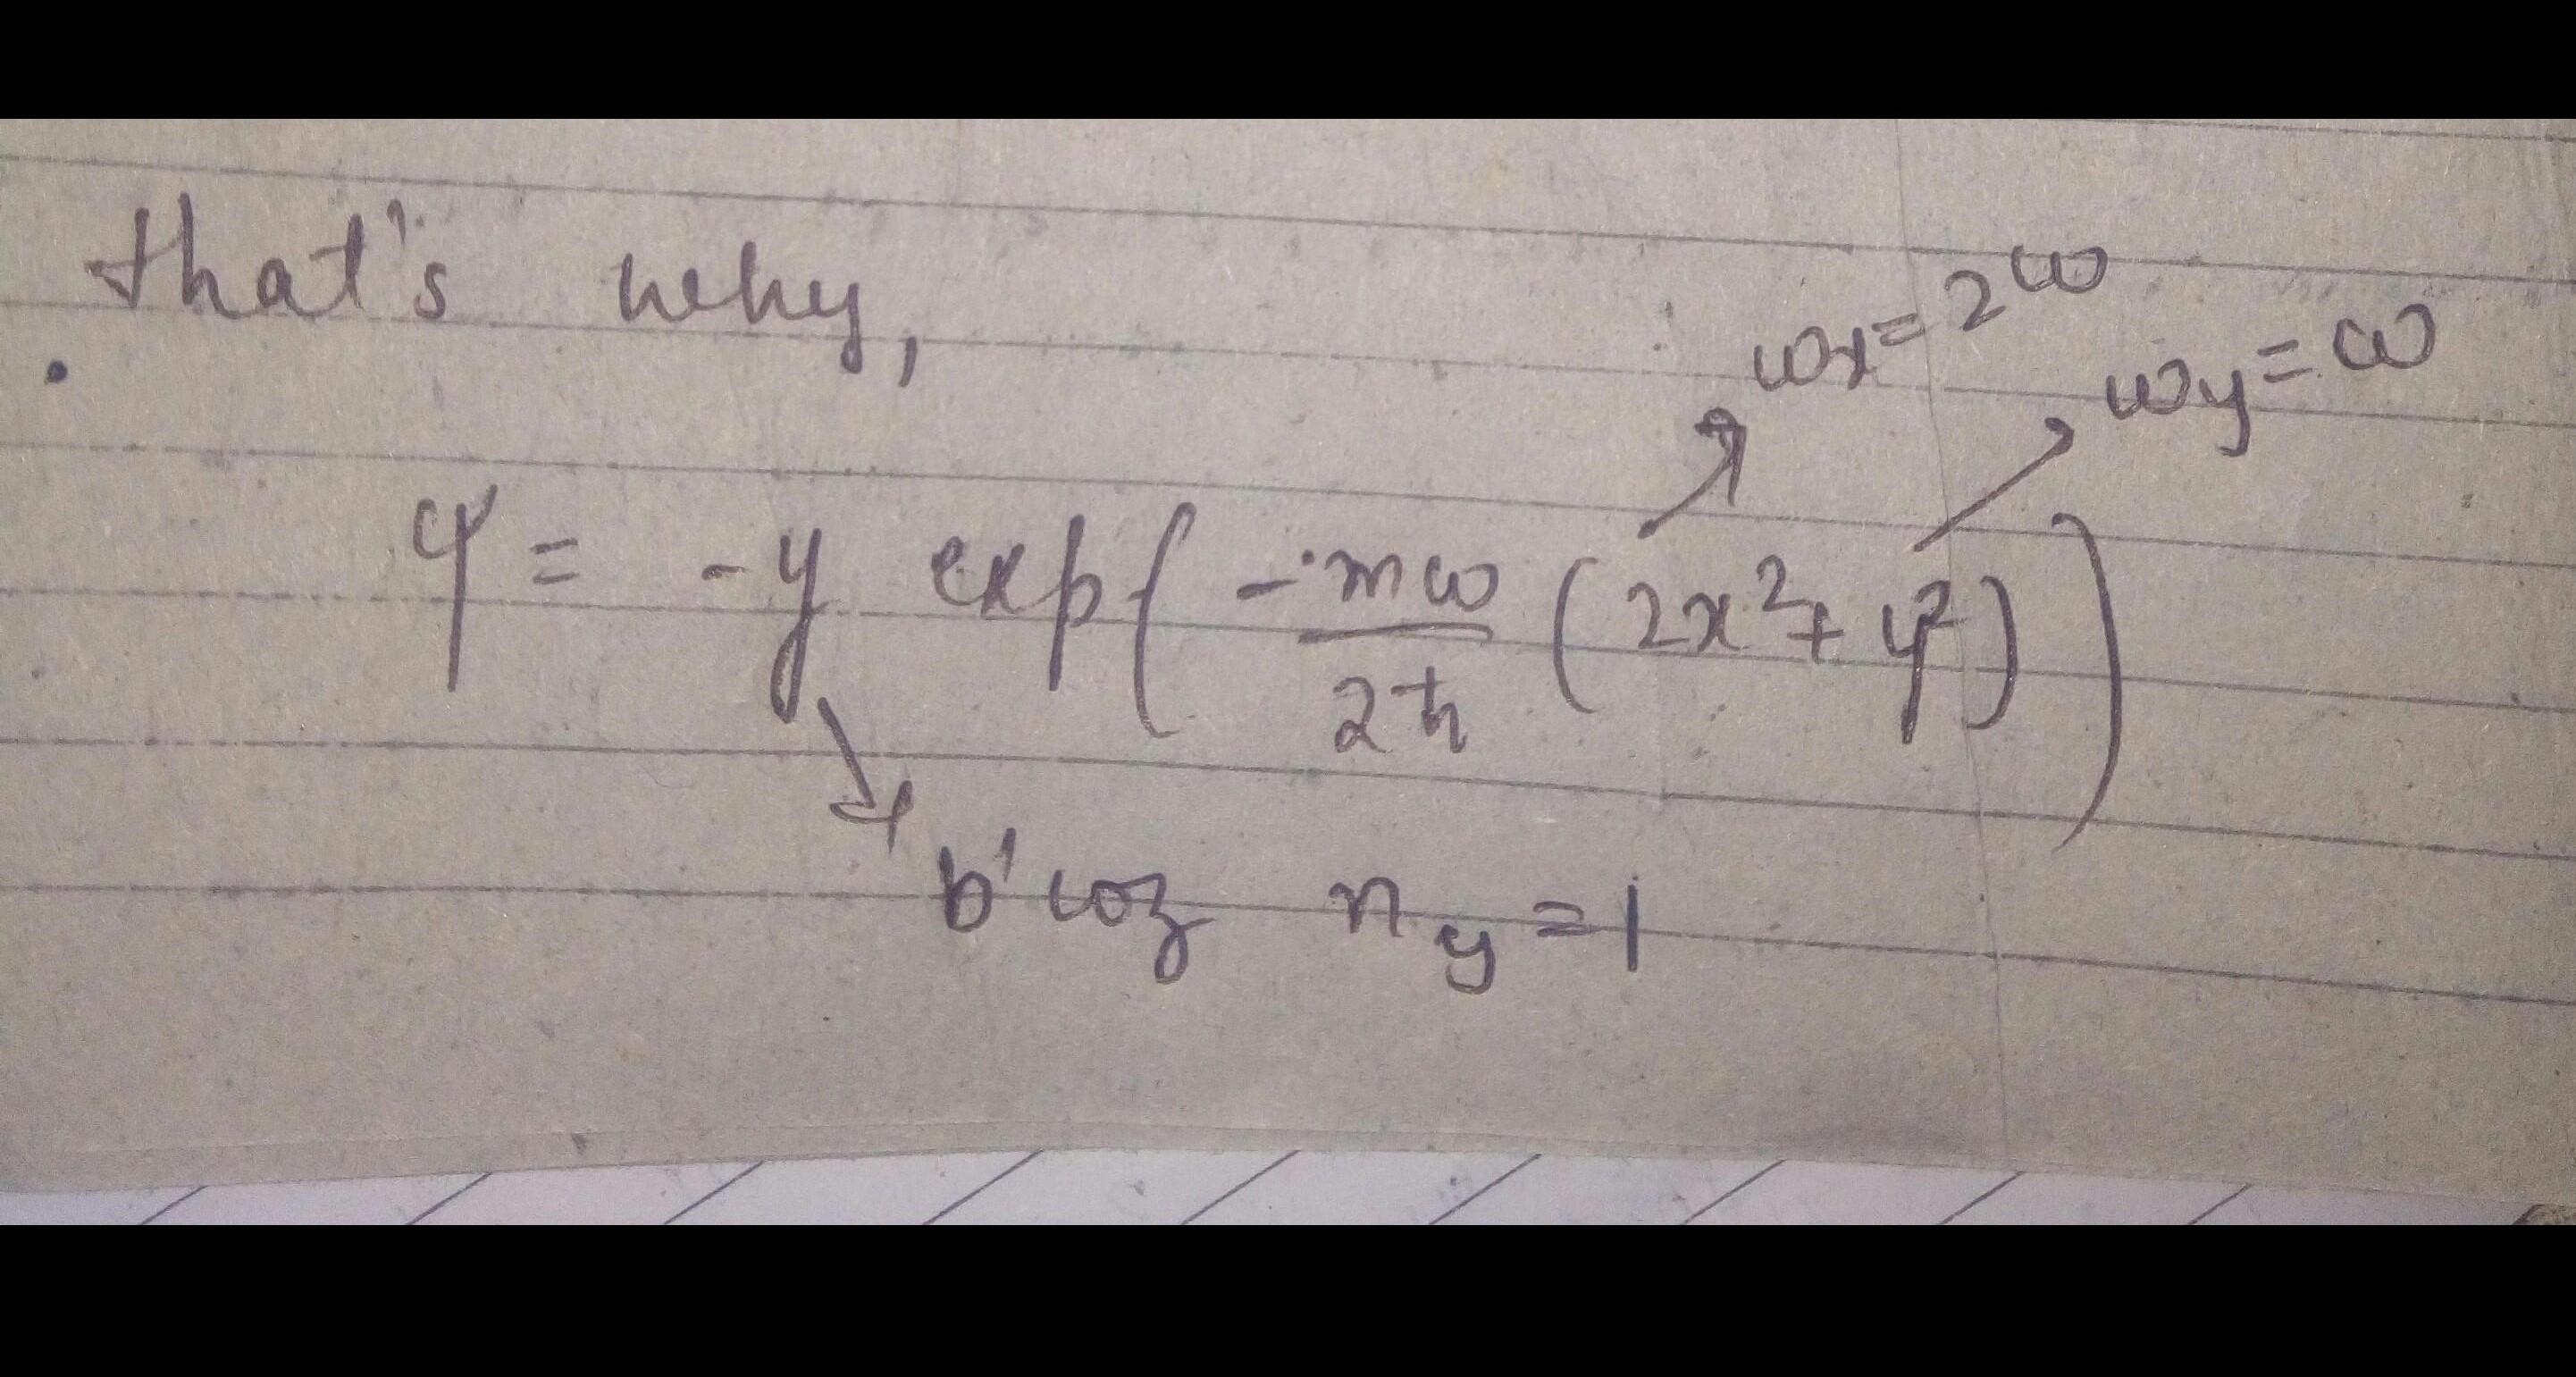 that's why,
ωx = 2ω
ωy = ω
ψ = -y exp( -mω/2ħ (2x² + y²) )
b'coz ny = 1